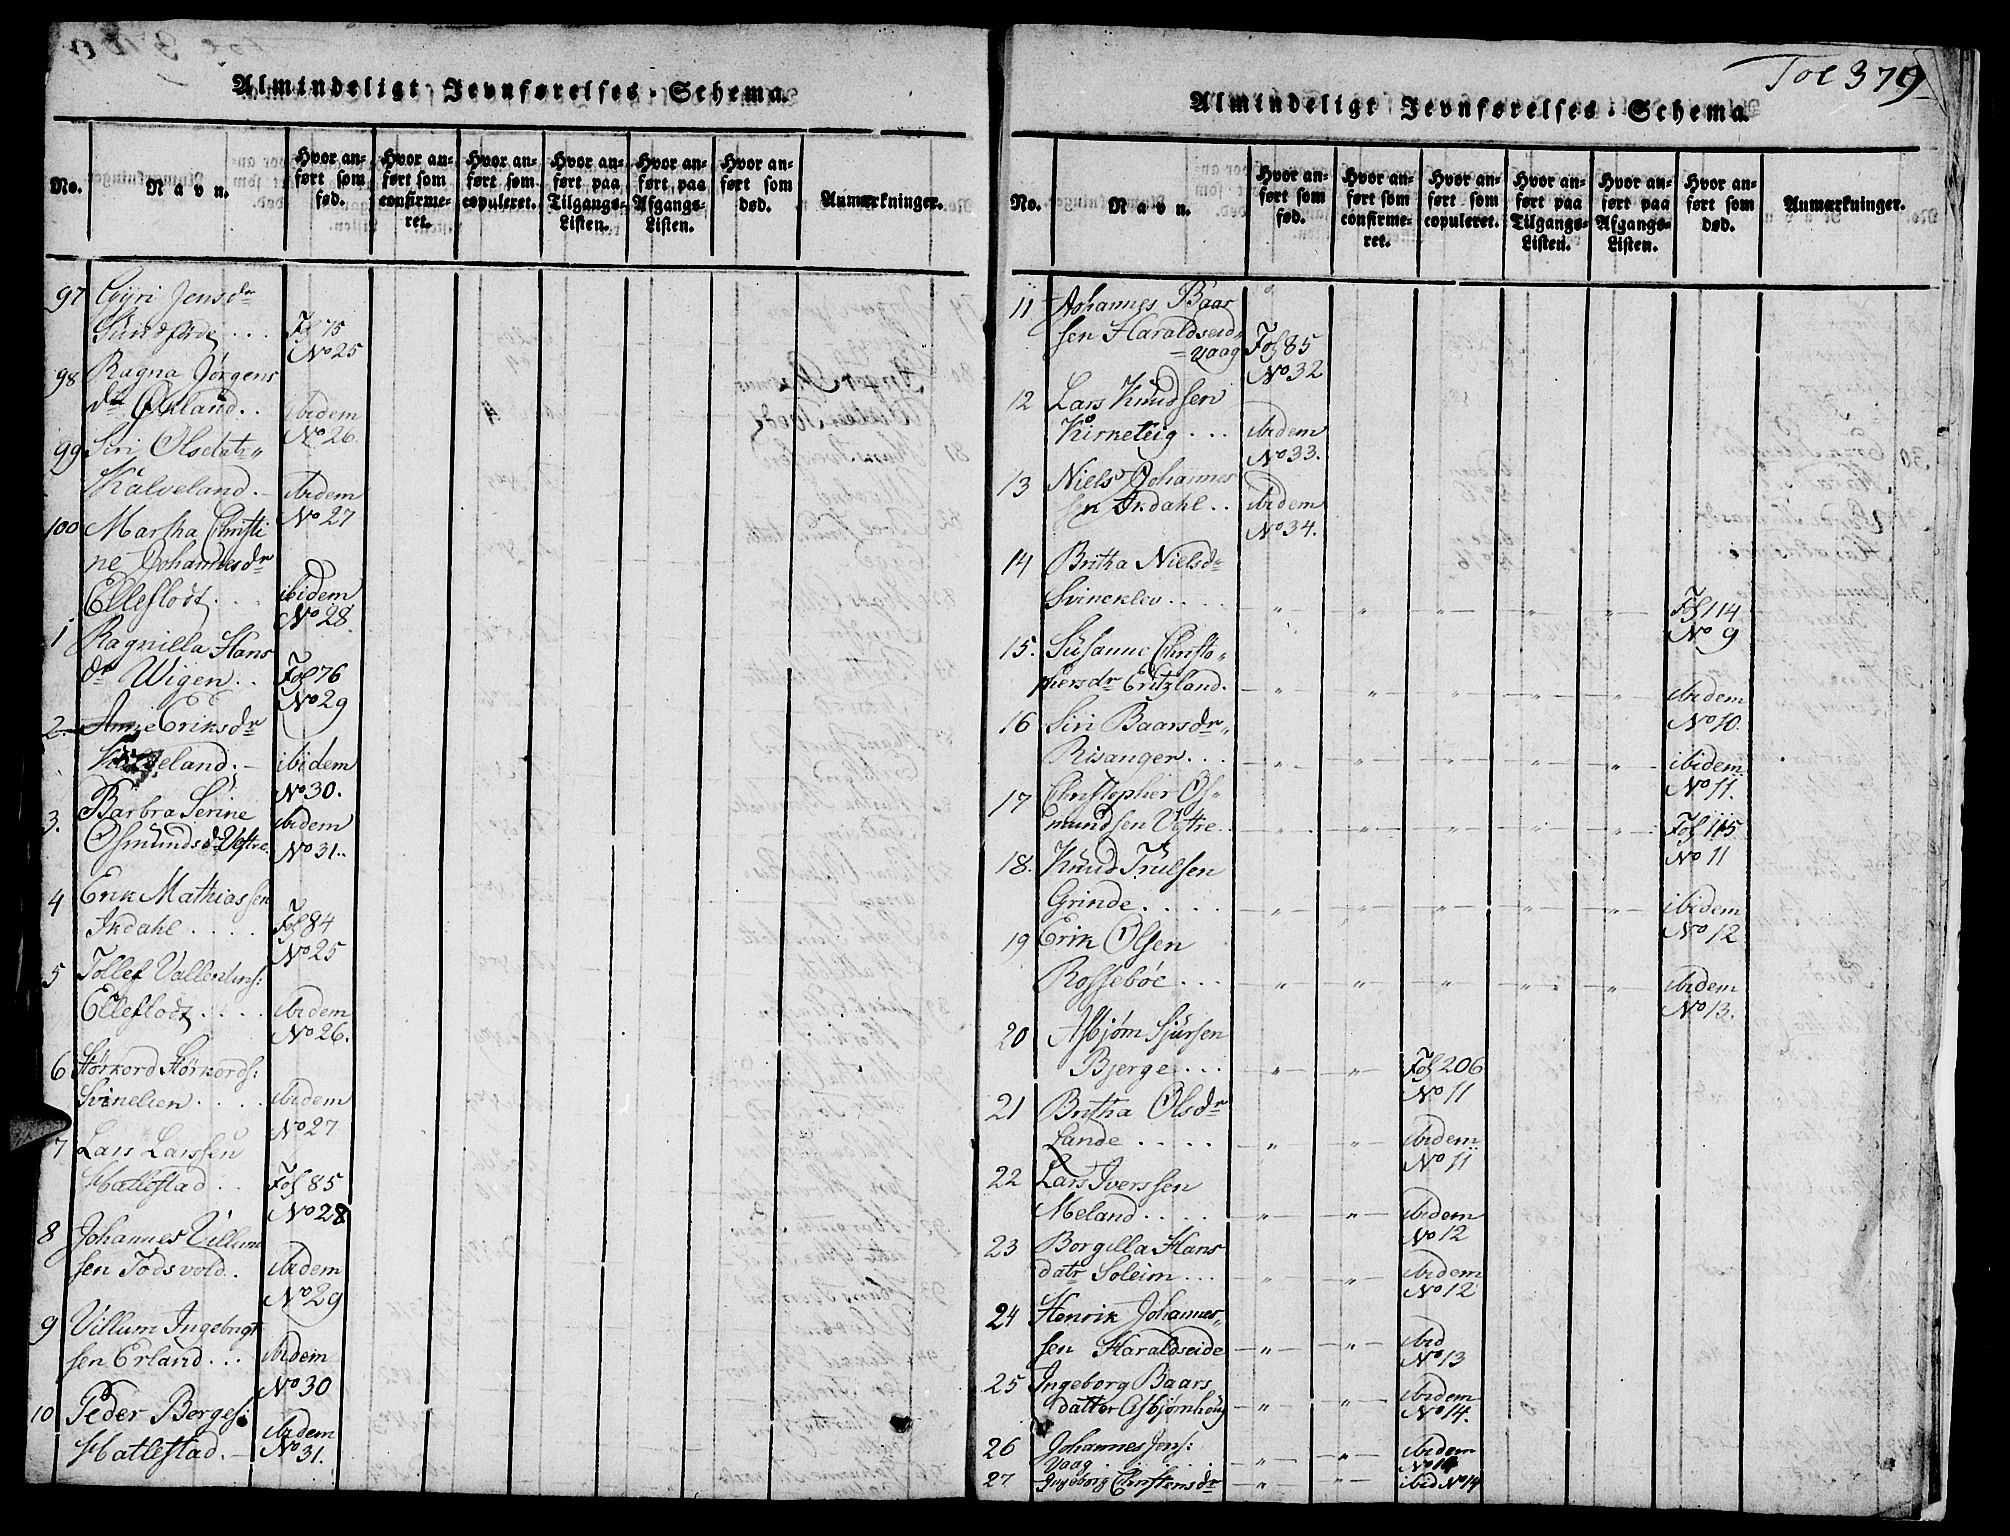 Almindeligt Jevnførelses-Schema.
No.
Navn.
Hvor an-
ført som
fød.
Hvor an-
ført som
confirme-
ret.
Hvor an-
ført som
copuleret.
Hvor an-
ført paa
Tilgangs-
Listen.
Hvor an-
ført paa
Afgangs-
Listen.
Hvor an-
ført som
død.
Anmærkninger.
97 Gyri Jensdr
Sundførde... Fol 75
No 25
98 Ragna Jørgens
dr Økland.. ibidem
No 26.
99 Siri Olsdatr„
Kalveland.- ibidem
No 27
100 Martha Christi
ne Johannesdr
Elleflodt.. ibidem
No 28.
1 Ragnilla Hans
dr Wigen.. Fol 76
No 29
2. Anne Eriksdr
ibidem
No 30.
3. Barbra Serine
Osmundsdr Vestre. ibidem
No 31..
4 Erik Mathiassen
Ikdahl.... Fol 84
No 25
5 Tollef Vallentins:
Elleflodt.... ibidem
No 26.
6 Størkord Størkords:
Svinelien.... ibidem
No 27
7 Lars Larssen
Hatlestad.. Fol 85
No 28
8 Johannes Villum
sen Todsvold.. ibidem
No 29
9 Villum Ingebrigt
sen Erland... ibidem
No 30
10 Peder Borges:
Hatlestad.- ibidem
No 31.
Fol 379
Almindeligt Jevnførelses-Schema.
No.
Navn.
Hvor an-
ført som
fød.
Hvor an-
ført som
confirme-
ret.
Hvor an-
ført som
copuleret.
Hvor an-
ført paa
Tilgangs-
Listen.
Hvor an-
ført paa
Afgangs-
Listen.
Hvor an-
ført som
død.
Anmærkninger.
11 Johannes Baar
sen Haraldseid-
=vaag Fol 85
No 32
12 Lars Knudsen
Kirketeig... ibidem
No 33.
13 Niels Johannes
sen Ikdahl.. ibidem
No 34.
14 Britha Nielsdr
Svincklev.... Fol 114
No 9
15. Susanne Christo„
phersdr Eritzland. ibidem
No 10.
16 Siri Baarsdr„
Risanger... ibidem.
No 11.
17 Christopher Os-
mundsen Vestre.. Fol 115
No 11
18. Knud Trulsen
Grinde.... ibidem
No 12
19 Erik Olsen
Rossebøe... ibidem
No 13.
20 Asbjørn Sjursen
Bjerge... Fol 206
No 11
21 Britha Olsdr
Lande.... ibidem
No 11
22 Lars Iverssen
Meland.... ibidem
No 12
23 Borgilla Hans
datr Soleim... ibidem
No 12
24 Henrik Johannes„
sen Haraldseide ibid
No 13
25 Ingeborg Baars
datter Asbjørnhoug ibidem
No 14.
26 Johannes Jens:
Vaag...... ibidem
No 14
27 Ingeborg Christensdr ibid No 14